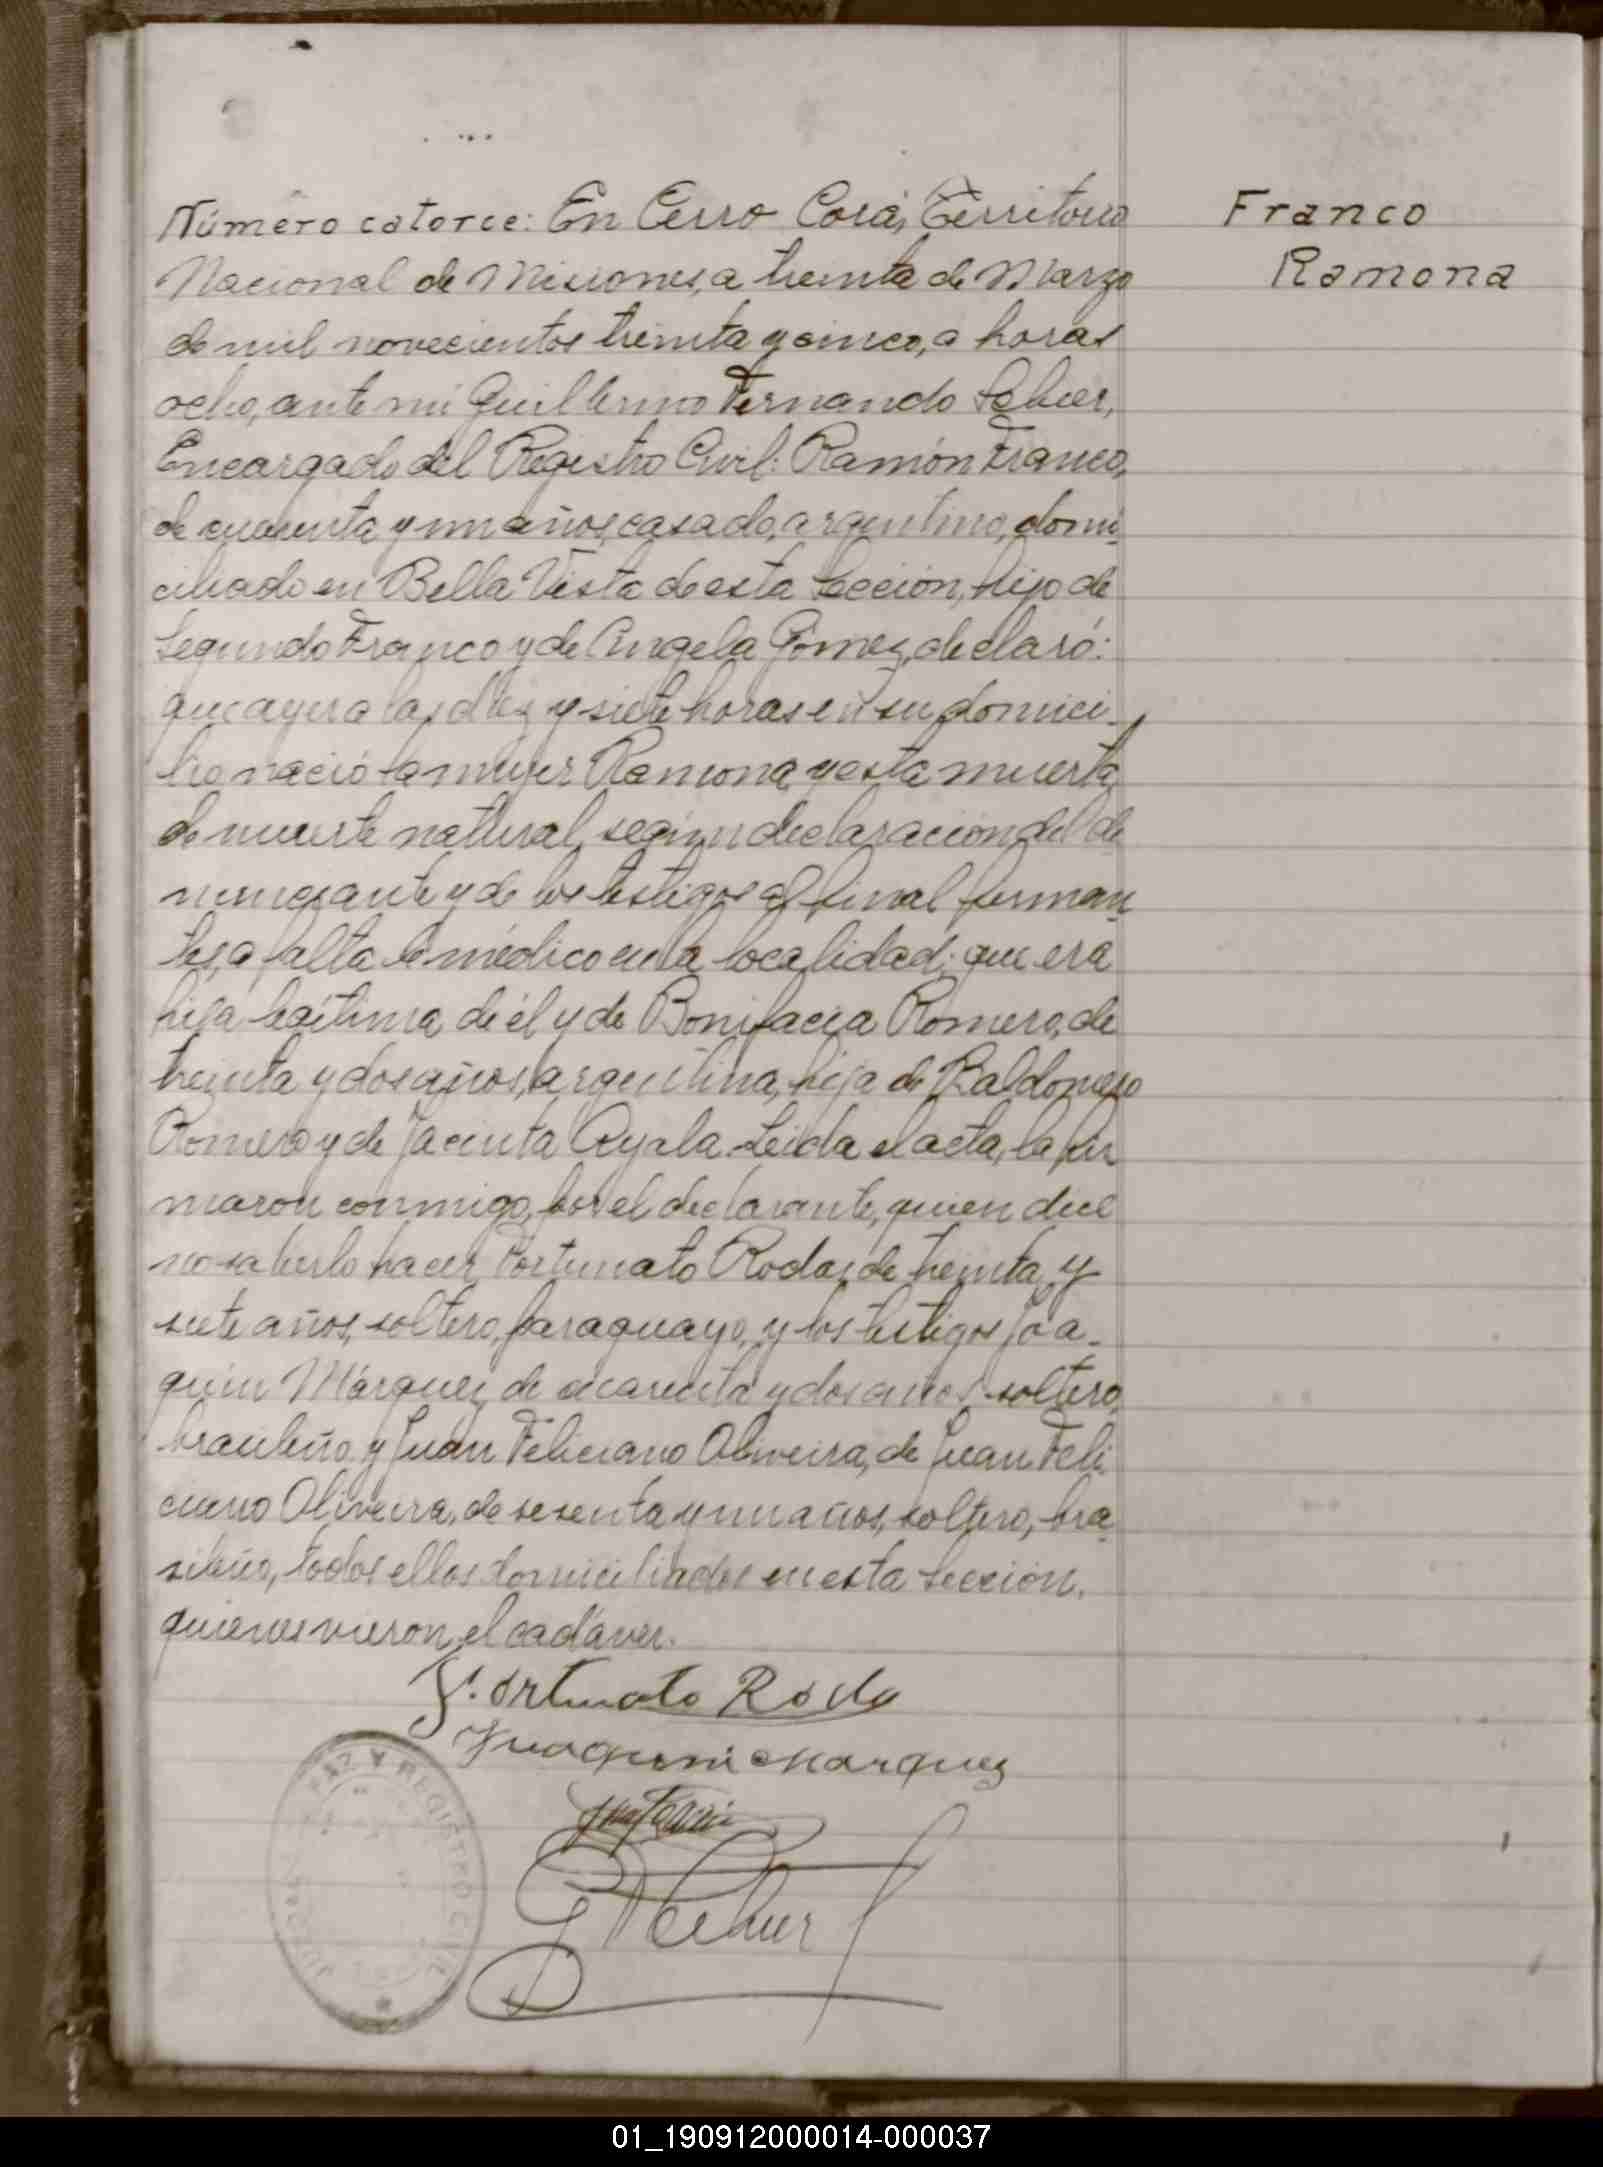 Número catorce: En Cerro Corá, Territorio
Nacional de Misiones, a treinta de Marzo
de mil novecientos treinta y cinco, a horas
ocho, ante mí Guillermo Fernando
Encargado del Registro Civil: Ramón Franco,
de cuarenta y un años, casado, argentino, domi-
ciliado en Bella Vista de esta Sección, hijo de
Segundo Franco y de Angela Gómez, declaró:
que ayer a las diez y siete horas en su domici-
lio nació la mujer Ramona y esta muerta,
de muerte natural, según declaración del de-
nunciante y de los testigos al final firman-
tes, a falta de médico en la localidad; que era
hija legítima de él y de Bonifacia Romero, de
treinta y dos años, argentina, hija de Baldomero
Romero y de Jacinta Ayala. Leida el acta, la fir
maron conmigo, por el declarante, quien dice
no saberlo hacer, Fortunato Roda, de treinta y
siete años, soltero, paraguayo, y los testigos Joa-
quin Márquez, de cuarenta y dos años, soltero,
brasileño y Juan Feliciano Oliveira, de Juan Feli
ciano Oliveira, de sesenta y un años, soltero, bra-
sileño, todos ellos domiciliados en esta Sección,
quienes vieron el cadáver.
Fortunato Roda
Juaquin Marquez
Franco
Ramona
PAZ Y REGISTRO CIVIL
JUZGADO
01_190912000014-000037